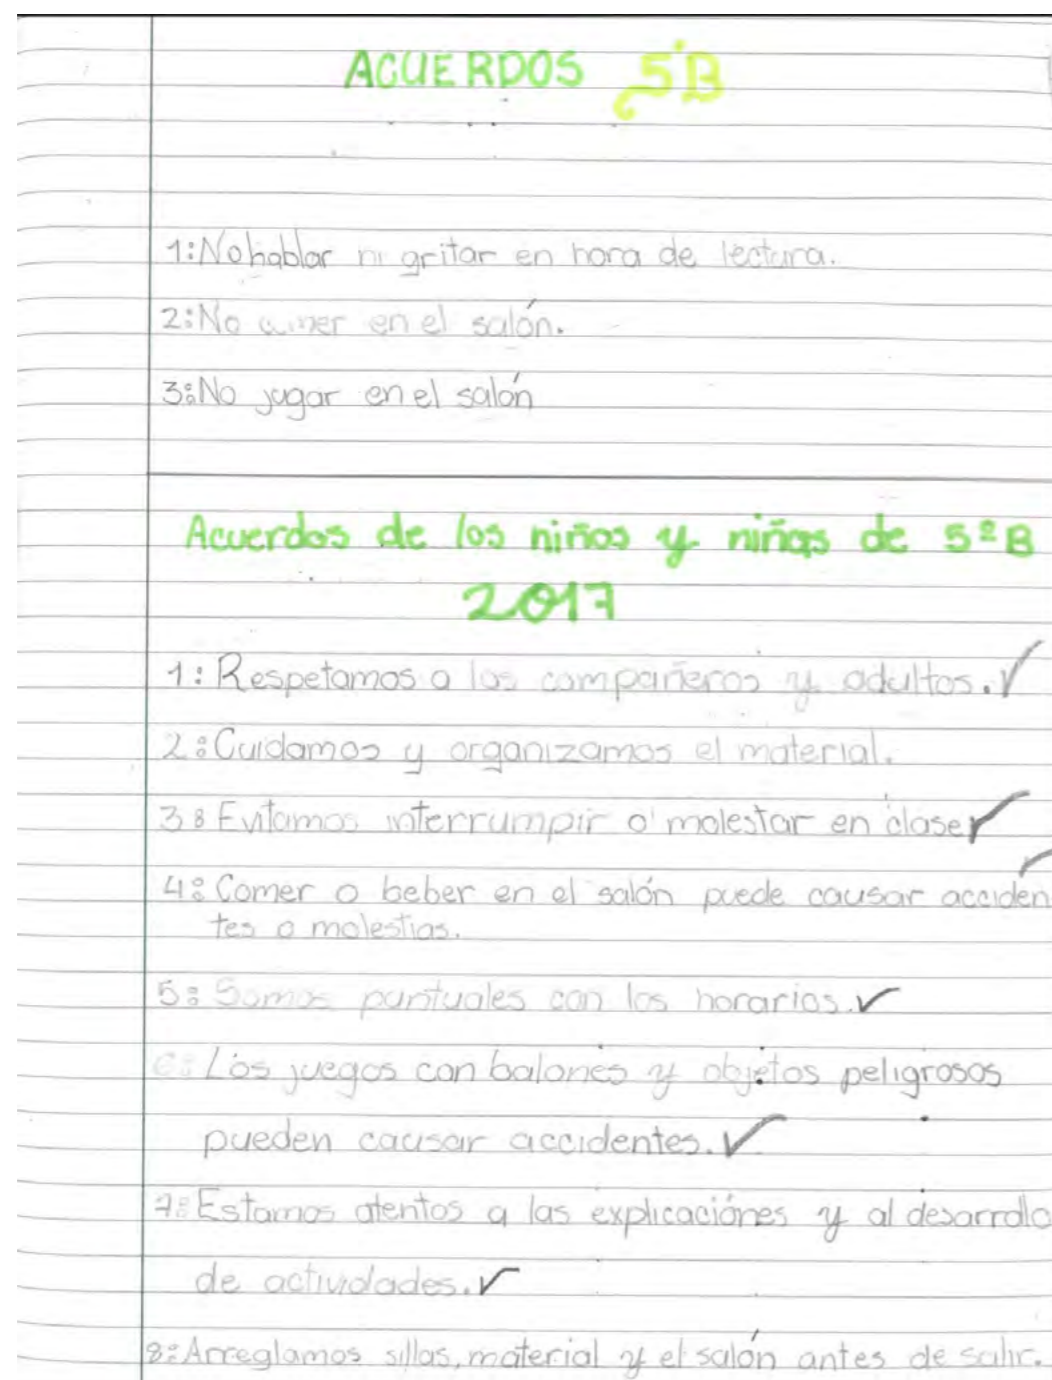 ACUERDOS 5°B
1:No hablar ni gritar en hora de lectura.
2:No comer en el salón.
3:No jugar en el salón
Acuerdos de los niños y niñas de 5º B
2017
1: Respetamos a los compañeros y adultos. ✓
2:Cuidamos y organizamos el material.
3: Evitamos interrumpir o molestar en clase ✓
4: Comer o beber en el salón puede causar acciden ✓
tes o molestias.
5: Somos puntuales con los horarios. ✓
6: Los juegos con balones y objetos peligrosos
pueden causar accidentes. ✓
7: Estamos atentos a las explicaciónes y al desarrollo
de actividades. ✓
8: Arreglamos sillas, material y el salón antes de salir.